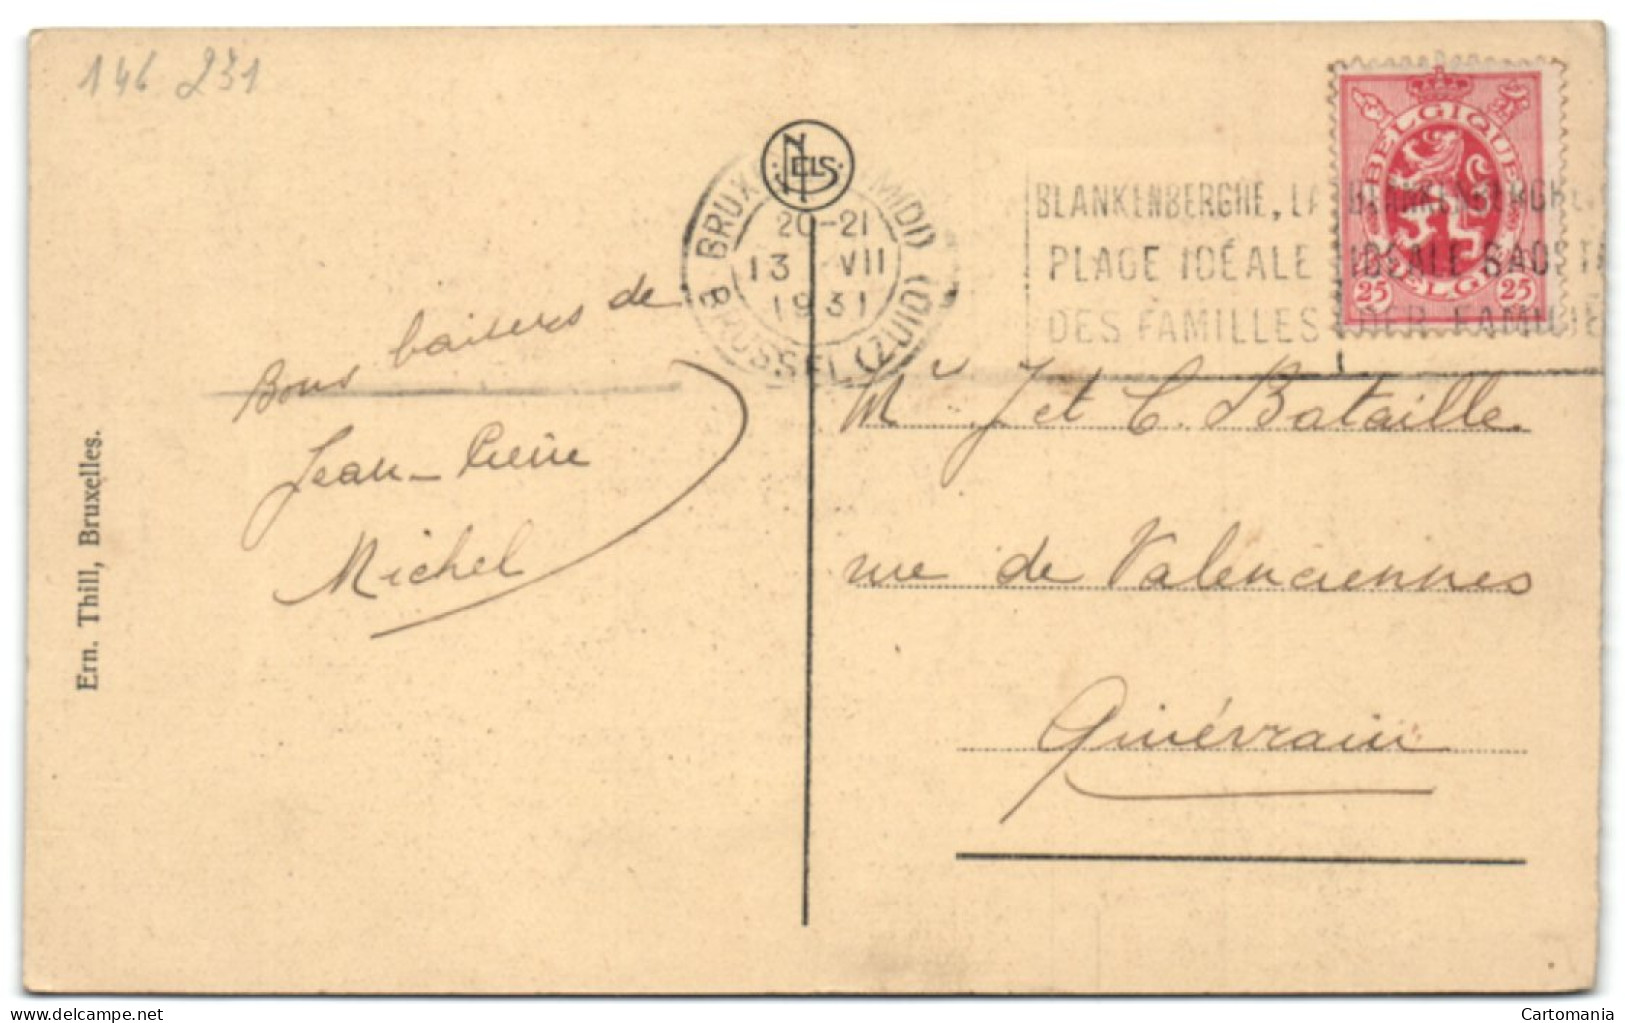 146 231
NELS
BRUX MIDI)
20-21
13 VII
1931
BRUSSEL (ZUID)
BLANKENBERGHE, LA
PLAGE IDÉALE
DES FAMILLES
BLANKENBERGHE
IDEALE BADSTA
DER FAMILIE
BELGIQUE
BELGIË
25 25
Bons baisers de
Jean-Pierre
Michel
Ern. Thill, Bruxelles.
Mr J et C. Bataille
rue de Valenciennes
Quiévrain
Cartomania